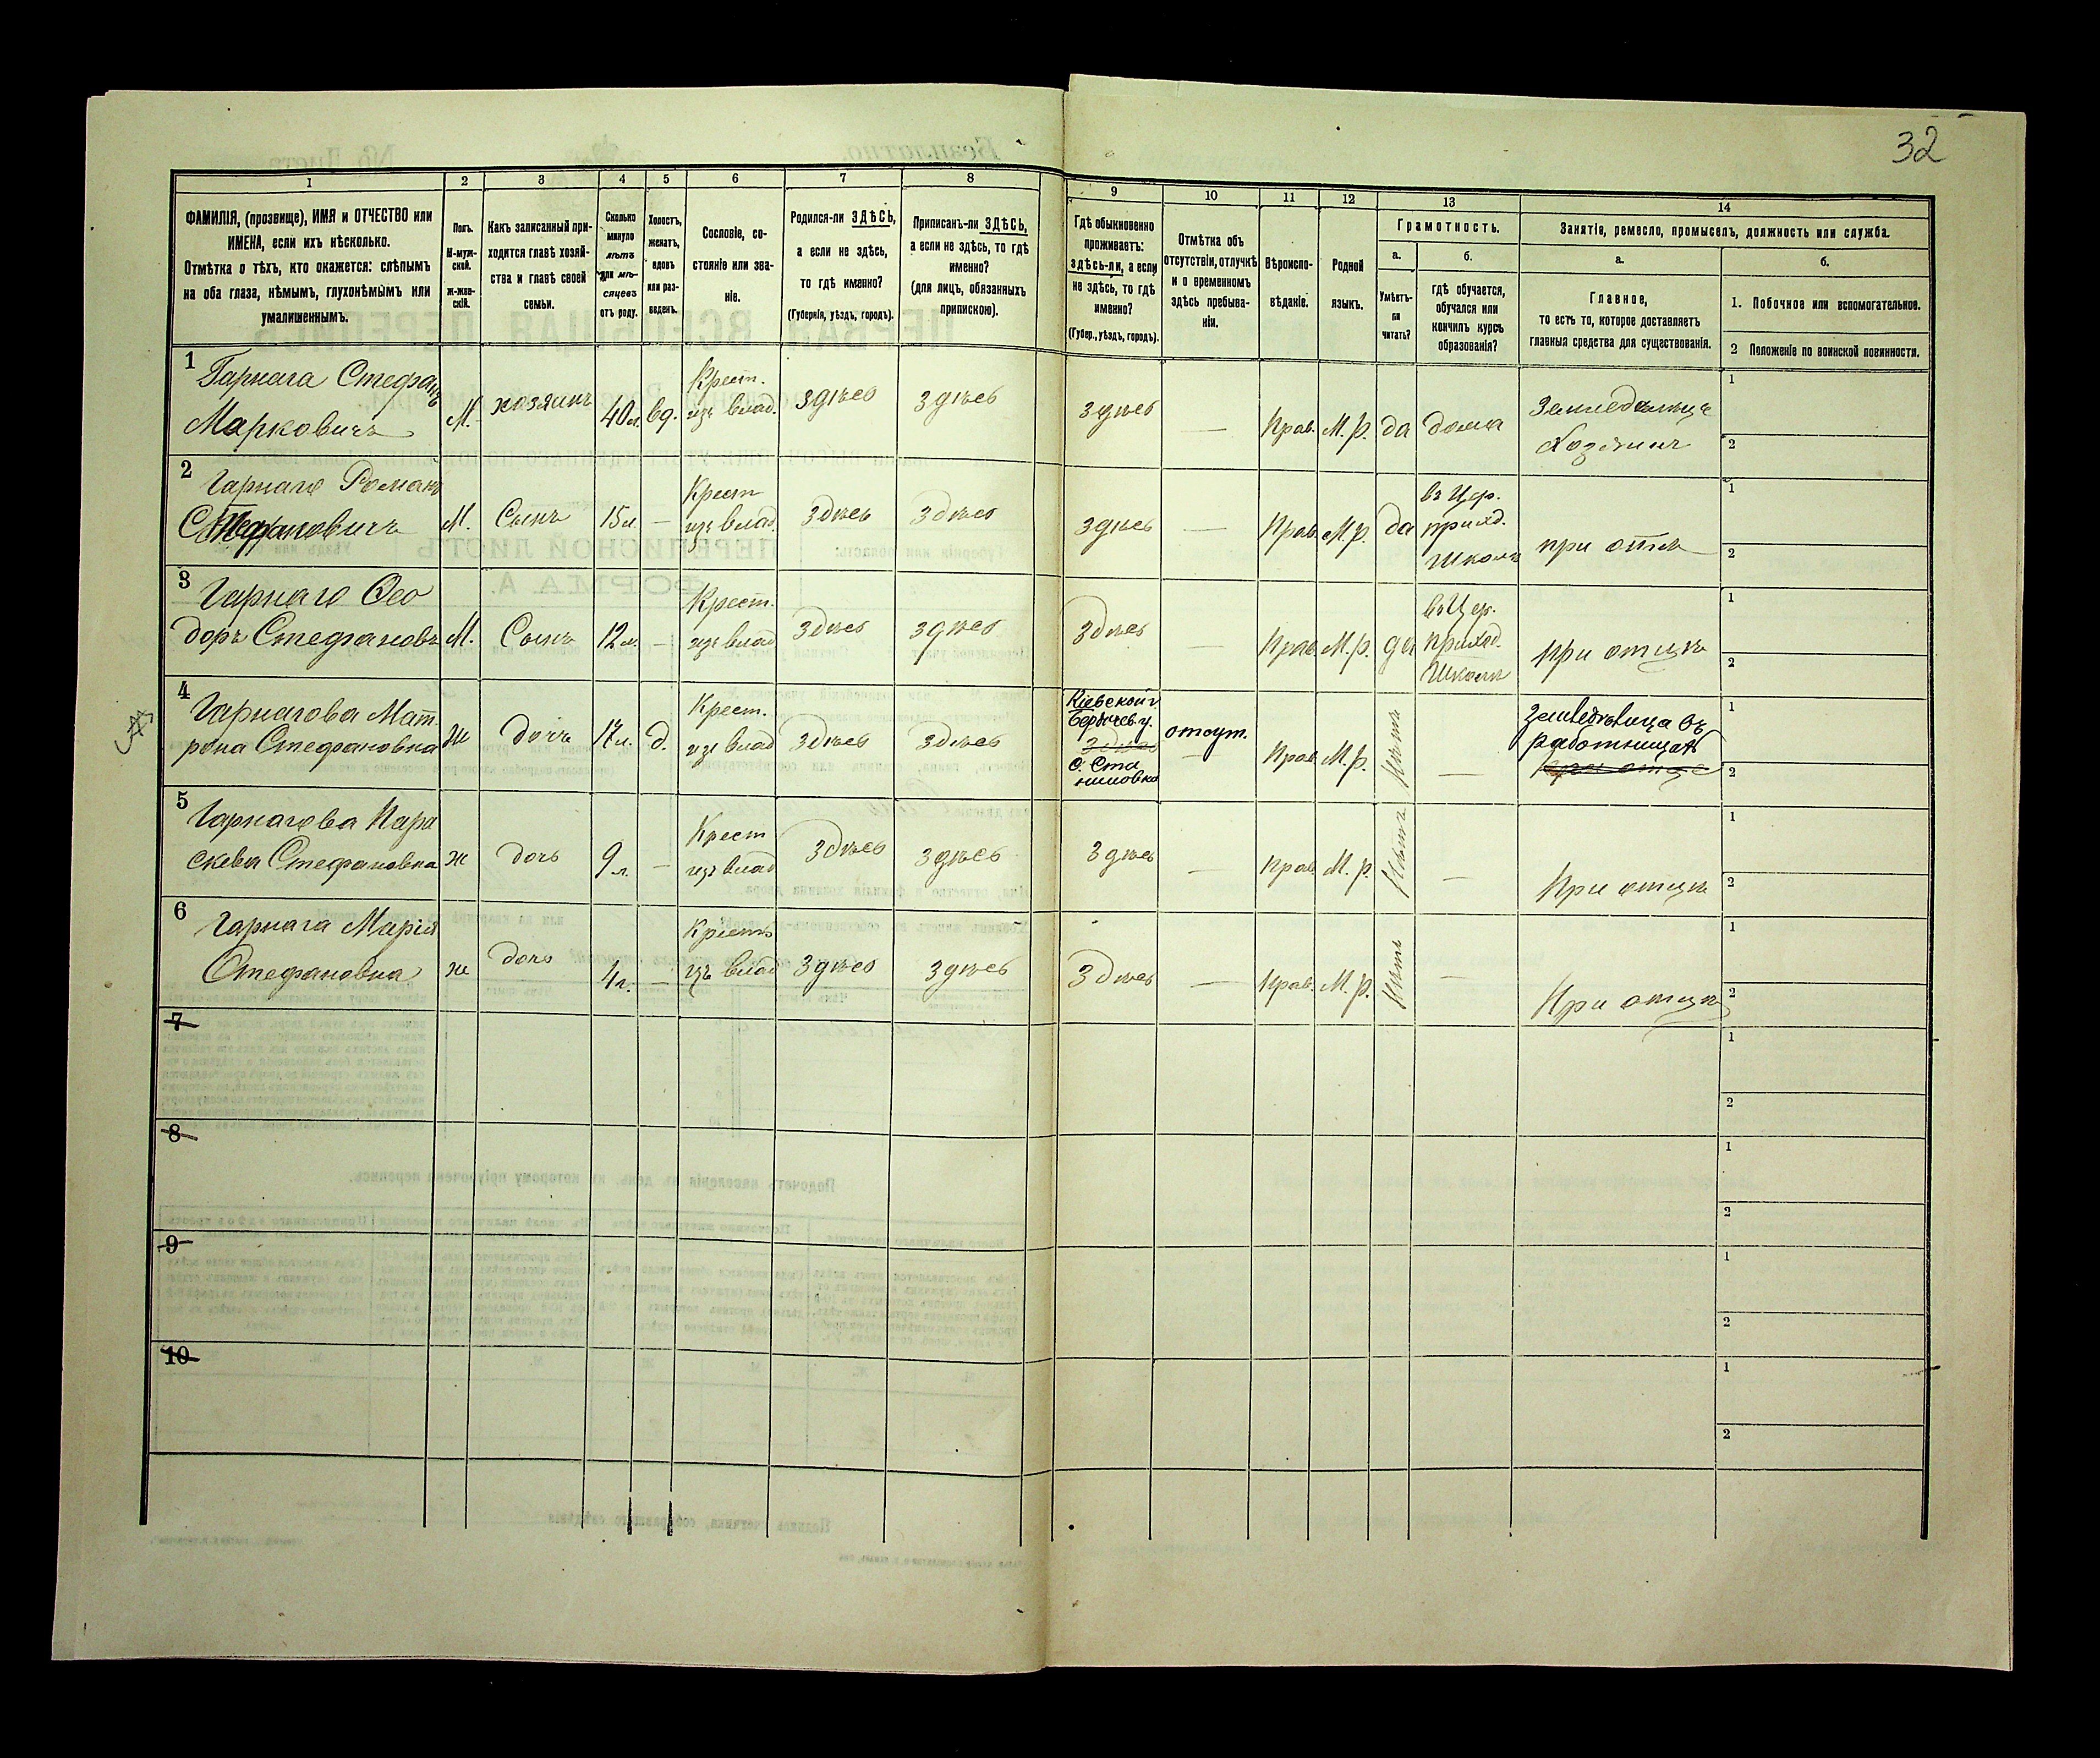 32
1
2
3
4
5
6
7
8
9
10
11
12
13
14
ФАМИЛІЯ, (прозвище), ИМЯ и ОТЧЕСТВО или
ИМЕНА, если ихъ нѣсколько.
Отмѣтка о тѣхъ, кто окажется: слѣпымъ
на оба глаза, нѣмымъ, глухонѣмымъ или
умалишеннымъ.
Полъ.
М-муж-
ской.
Ж-жен-
скій.
Какъ записанный при-
ходится главѣ хозяй-
ства и главѣ своей
семьи.
Сколько
минуло
лѣтъ
или мѣ-
сяцевъ
отъ роду.
Холостъ,
женатъ,
вдовъ
или раз-
веденъ.
Сословіе, со-
стояніе или зва-
ніе.
Родился-ли ЗДѢСЬ,
а если не здѣсь,
то гдѣ именно?
(Губернія, уѣздъ, городъ).
Приписанъ-ли ЗДѢСЬ,
а если не здѣсь, то гдѣ
именно?
(для лицъ, обязанныхъ
припискою).
Гдѣ обыкновенно
проживаетъ:
здѣсь-ли, а если
не здѣсь, то гдѣ
именно?
(Губер., уѣздъ, городъ).
Отмѣтка объ
отсутствіи, отлучкѣ
и о временномъ
здѣсь пребыва-
ніи.
Вѣроиспо-
вѣданіе.
Родной
языкъ.
Грамотность.
а.
Умѣетъ-
ли
читать?
б.
гдѣ обучается,
обучался или
кончилъ курсъ
образованія?
Занятіе, ремесло, промыселъ, должность или служба.
а.
Главное,
то есть то, которое доставляетъ
главныя средства для существованія.
б.
1. Побочное или вспомогательное.
2 Положеніе по воинской повинности.
1
Гарнага Стефанъ
Марковичъ
М.
хозяинъ
40 л.
вд.
Крест.
изъ влад.
здѣсь
здѣсь
здѣсь
—
Прав.
М. р.
да
дома
Хозяинъ
1
2
2
Гарнаго Романъ
Стефановичъ
М.
Сынъ
15 л.
—
Крест
изъ влад
здѣсь
здѣсь
здѣсь
—
Прав.
М. р.
да
въ Цер.
приход.
Школѣ
при отцѣ
1
2
3
Гарнаго Ѳео
доръ Стефановъ
М.
Сынъ
12 л.
—
Крест.
изъ влад
здѣсь
здѣсь
здѣсь
—
Прав
М. р.
да
въ Цер.
приход.
Школѣ
при отцѣ
1
2
4
Гарнагова Мат
рона Стефановна
Ж
дочь
17 л.
д.
Крест.
изъ влад
здѣсь
здѣсь
Кіевской г.
Бердичев. у.
здѣсь
с. Ста
нисловка
отсут.
—
Прав
М. р.
Нѣтъ
—
работницахъ
при отцѣ
1
2
5
Гарнагова Пара
скева Стефановна
ж
дочь
9 л.
—
Крест
изъ влад
здѣсь
здѣсь
здѣсь
—
прав
М. р.
Нѣтъ
—
При отцѣ
1
2
6
Гарнага Марія
Стефановна
ж
дочь
4 г.
—
Крестъ
изъ влад
здѣсь
здѣсь
здѣсь
—
Прав.
М. р.
Нѣтъ
—
При отцѣ
1
2
7
1
2
8
1
2
9
1
2
10
1
2